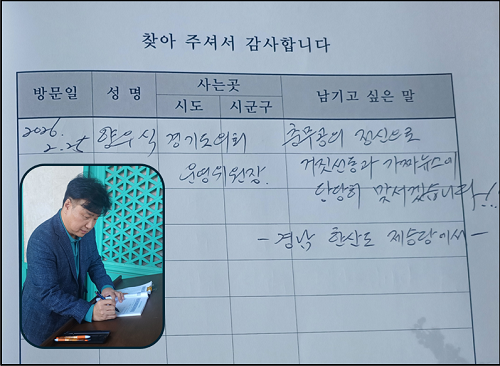 찾아 주셔서 감사합니다
방문일 성 명 사는곳 남기고 싶은 말
시도 시군구
2026. 2.25 양우식 경기도의회 충무공의 정신으로
운영위원장. 거짓선동과 가짜뉴스에
당당히 맞서겠습니다-!!
- 경남 한산도 제승당에서 -